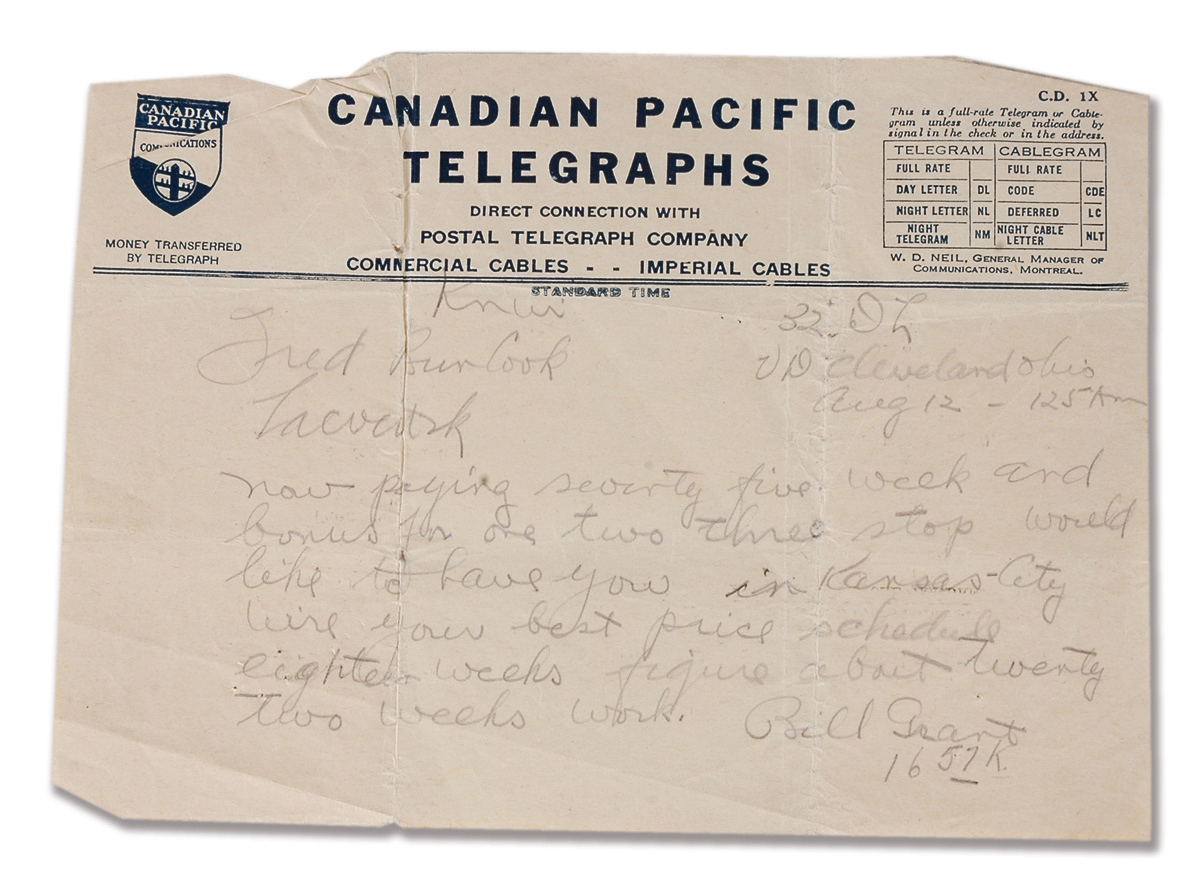 CANADIAN PACIFIC
COMMUNICATIONS
MONEY TRANSFERRED
BY TELEGRAPH
CANADIAN PACIFIC
TELEGRAPHS
DIRECT CONNECTION WITH
POSTAL TELEGRAPH COMPANY
COMMERCIAL CABLES - - IMPERIAL CABLES
STANDARD TIME
C.D. 1X
This is a full-rate Telegram or Cable-
gram unless otherwise indicated by
signal in the check or in the address.
TELEGRAM CABLEGRAM
FULL RATE FULL RATE
DAY LETTER DL CODE CDE
NIGHT LETTER NL DEFERRED LC
NIGHT TELEGRAM NM NIGHT CABLE LETTER NLT
W. D. NEIL, GENERAL MANAGER OF
COMMUNICATIONS, MONTREAL.
32 DL
Fred
Cleveland Ohio
Aug 12 - 125 Am
now paying seventy five week and
bonus for one two three stop would
like to have you in Kansas City
wire your best price schedule
eighteen weeks figure about twenty
two weeks work. Bill Grant
16 57K